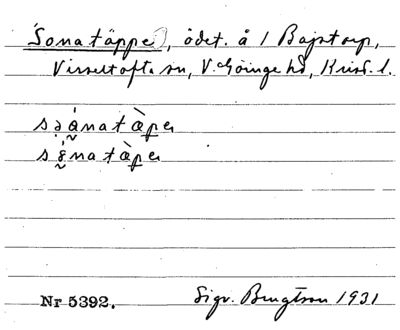 Sonatäppe, ödet. å 1 Bajstorp,
Visseltofta sn, V. Göinge hd, Krist. l.
Nr 5392. Sigv. Bengtson 1931